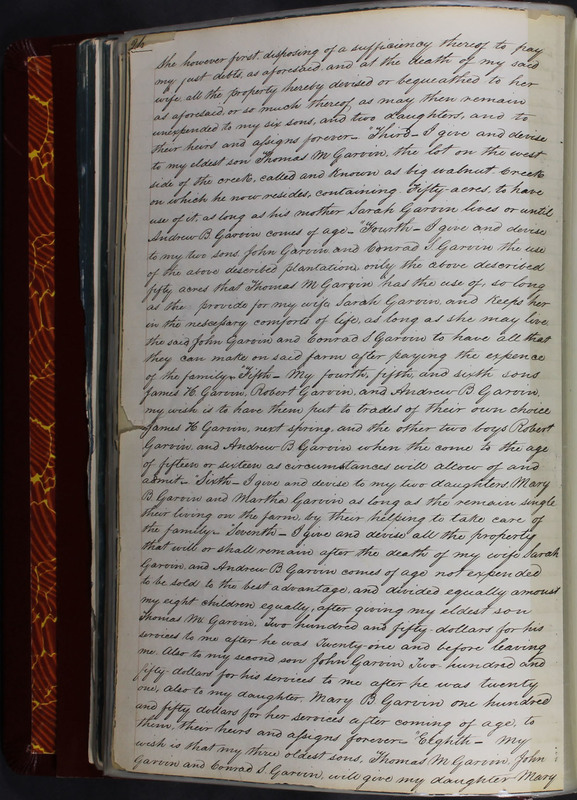 94
She however first disposing of a sufficiency thereof to pay
my just debts, as aforesaid, and at the death of my said
wife, all the property hereby devised or bequeathed to her
as aforesaid, or so much thereof, as may then remain
unexpended to my six sons, and two daughters, and to
their heirs and assigns forever_ "Third_ I give and devise
to my eldest son Thomas M. Garvin, the lot on the west
side of the creek, called and known as big walnut Creek
on which he now resides, containing Fifty acres, to have
use of it, as long as his mother Sarah Garvin lives or until
Andrew B Garvin comes of age_ "Fourth_ I give and devise
to my two sons, John Garvin, and Conrad S. Garvin the use
of the above described plantation, only the above described
fifty acres that Thomas M Garvin has the use of, so long
as the provide for my wife Sarah Garvin, and keeps her
in the nescessary comforts of life, as long as she may live
the said John Garvin and Conrad S Garvin to have all that
they can make on said farm after paying the expence
of the family_ "Fifth_ My fourth, fifth, and sixth sons
James H. Garvin, Robert Garvin, and Andrew B. Garvin,
my wish is to have them put to trades of their own choice
James H Garvin, next spring, and the other two boys Robert
Garvin, and Andrew B Garvin when the come to the age
of fifteen or sixteen as circumstances will allow of and
admit_ "Sixth_ I give and devise to my two daughters, Mary
B Garvin and Martha Garvin as long as the remain single
their living on the farm, by their helping to take care of
the family_ "Seventh_ I give and devise all the property
that will or shall remain after the death of my wife Sarah
Garvin, and Andrew B Garvin comes of age not expended
to be sold to the best advantage, and divided equally amoust
my eight children equally, after giving my eldest son
Thomas M. Garvin, Two hundred and fifty dollars for his
services to me after he was Twenty one and before leaving
me. Also to my second son John Garvin Two hundred and
fifty dollars for his services to me after he was twenty
one, also to my daughter, Mary B Garvin one hundred
and fifty dollars for her services after coming of age, to
them, their heirs and assigns forever_ "Eighth_ My
wish is that my three oldest sons, Thomas M. Garvin, John
Garvin and Conrad S. Garvin, will give my daughter Mary